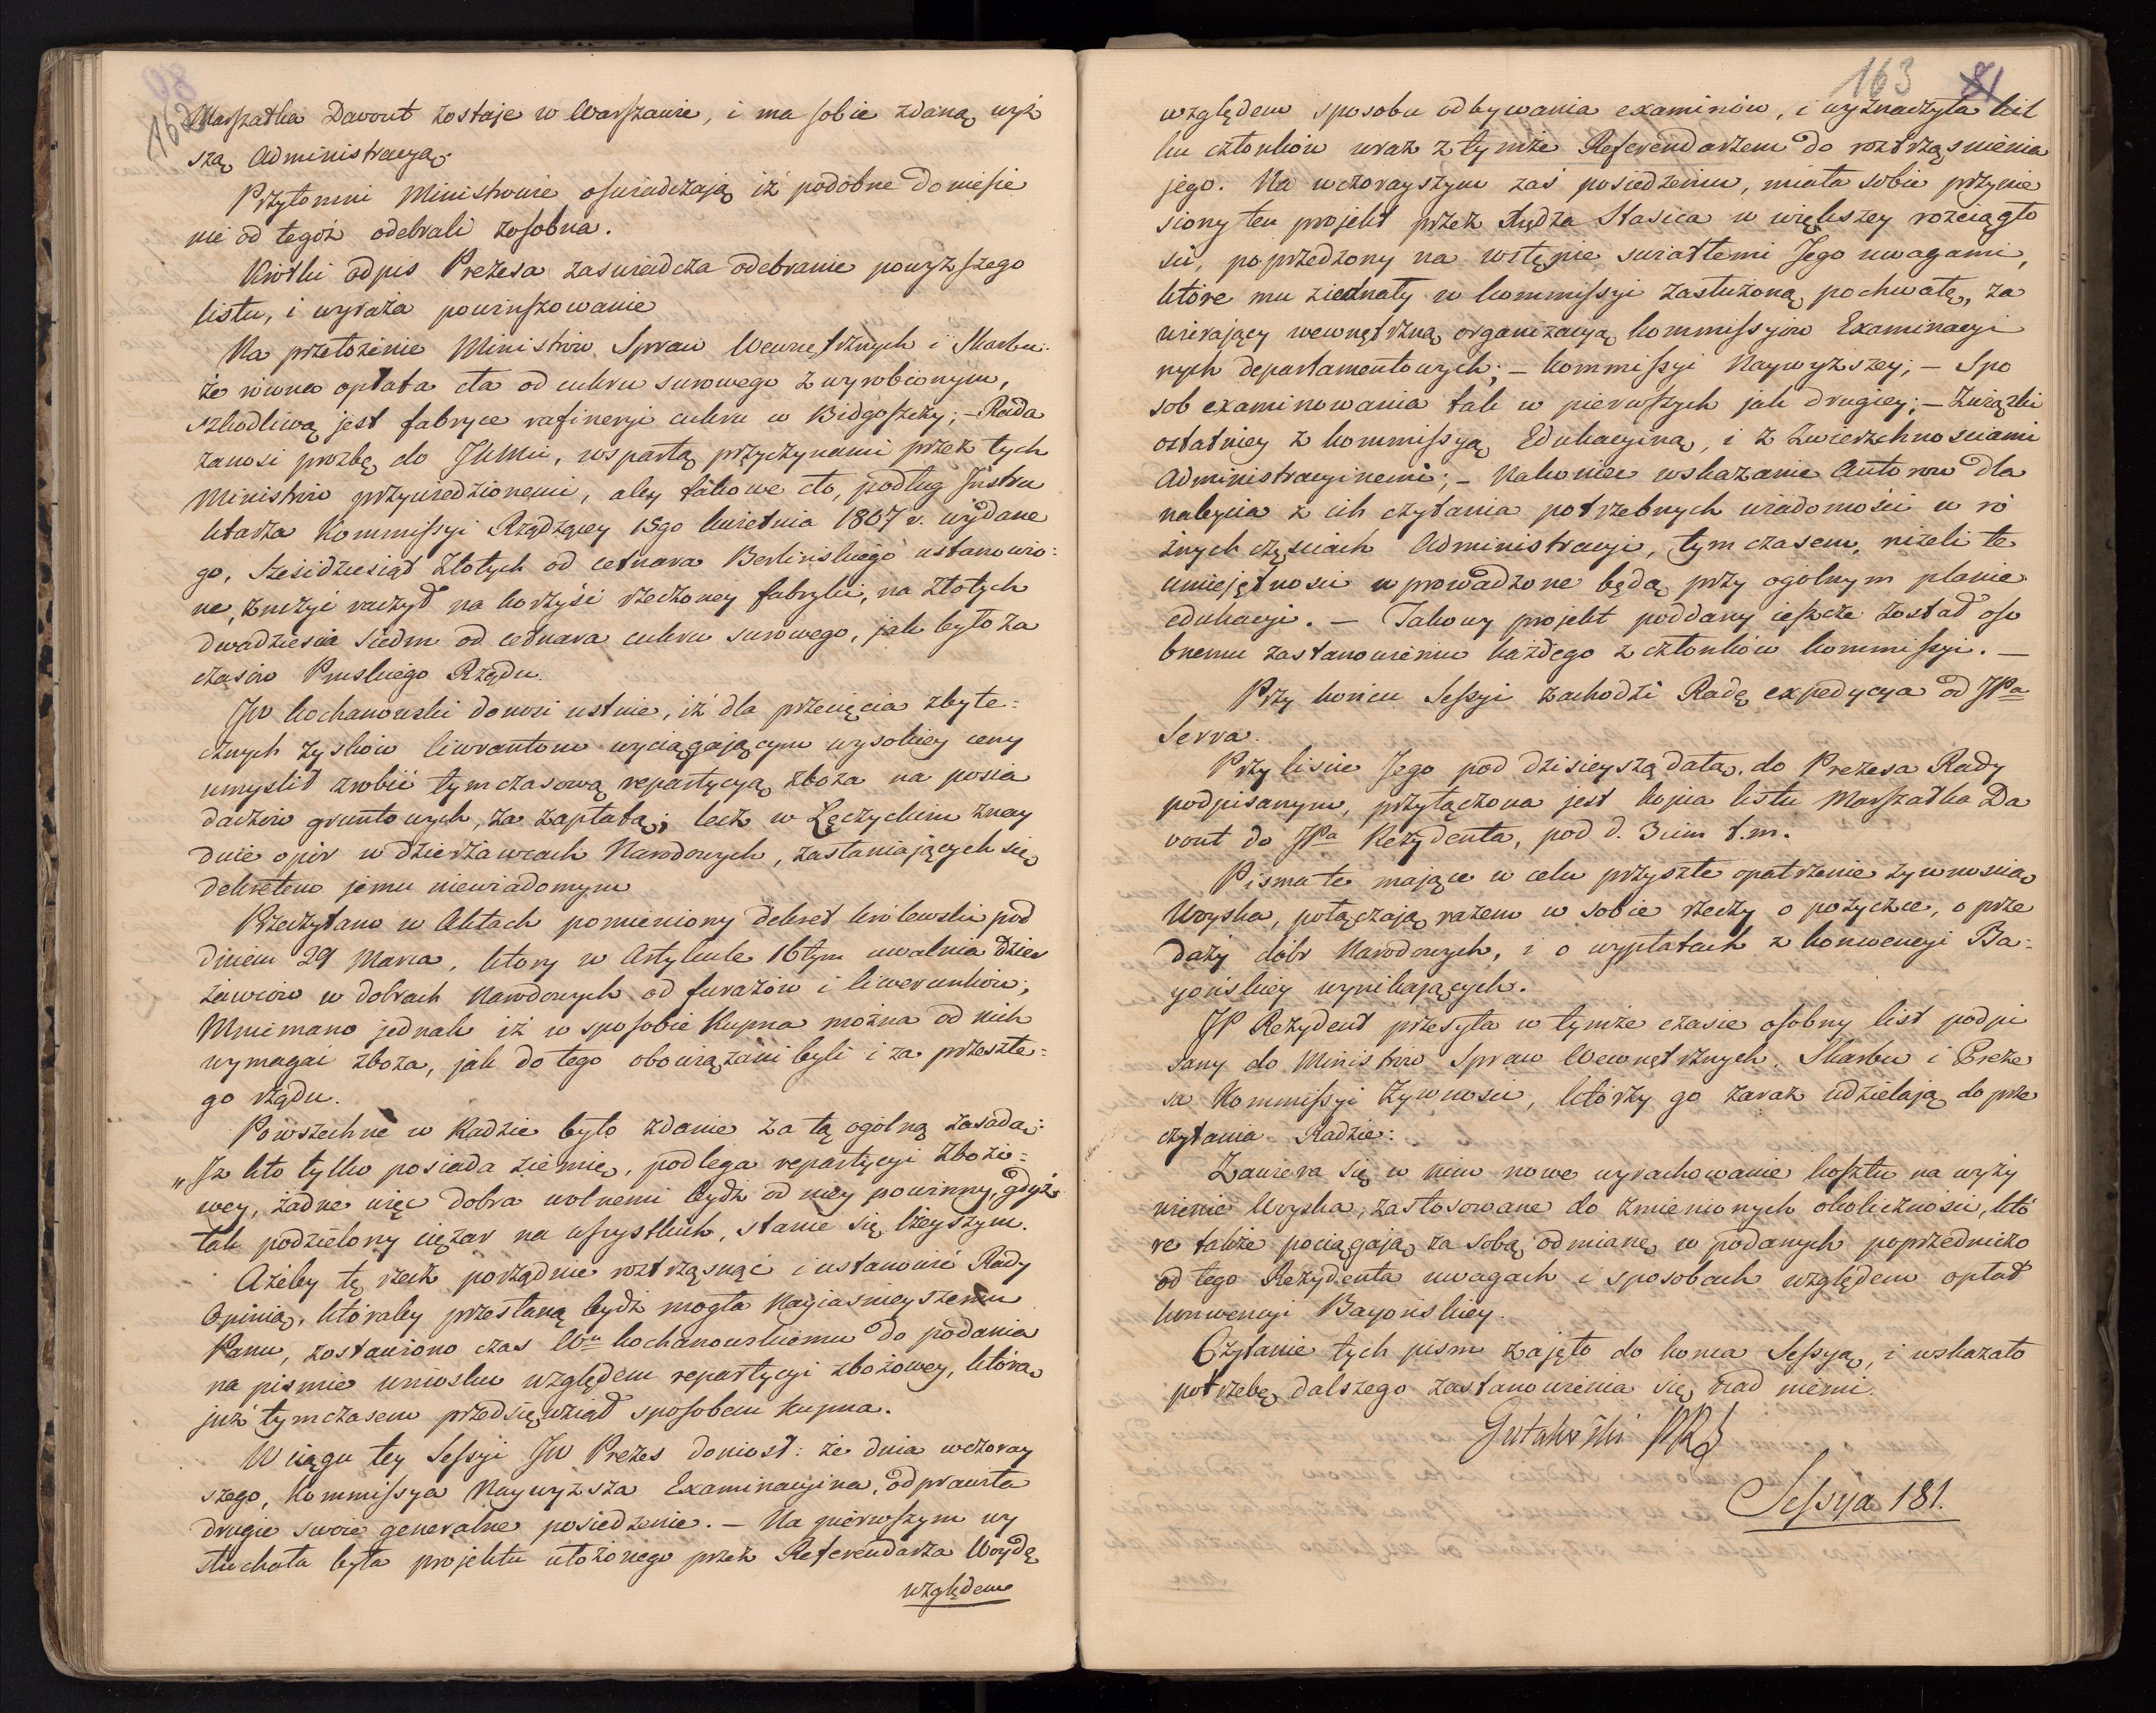 98
162
Marszałka Davout zostaje w Warszawie, i ma sobie zdaną wyż
szą Administracyą.
Przytomni Ministrowie oświadczają iż podobne doniesie
nie od tegoż odebrali zosobna.
Krótki odpis Prezesa zaświadcza odebranie powyższego
listu, i wyraża powinszowanie
Na przełożenie Ministrów Spraw Wewnętrznych i Skarbu:
że równa opłata cła od cukru surowego z wyrobionym,
szkodliwą jest fabryce rafineryi cukru w Bidgoszczy; – Rada
zanosi prozbę do JKMci, wspartą przyczynami przez tych
Ministrów przywiedzionemi, aby takowe cło, podług Instru
ktarza Kommissyi Rządzącey 15go kwietnia 1807 r. wydane
go, sześcidziesiąt Złotych od cetnara Berlińskiego ustanowio:
ne, zniżyć raczył na korzyść rzeczoney fabryki, na złotych
dwadzieścia siedm od cetnara cukru surowego, jak było za
czasów Pruskiego Rządu.
JW Kochanowski donosi ustnie, iż dla przecięcia zbyte:
cznych zysków liwrantom wyciągającym wysokiey ceny
umyślił zrobić tymczasową repartycyą zboża na posia
daczów gruntowych, za zapłatą; lecz w Łęczyckim znay
duie opór w dzierżawcach Narodowych, zasłaniających się
dekretem jemu niewiadomym
Przeczytano w Aktach pomieniony dekret królewski pod
dniem 29 Marca, który w Artykule 16tym uwalnia dzier
żawców w dobrach Narodowych od furażów i liwerunków;
Mniemano jednak iż w sposobie kupna można od nich
wymagać zboża, jak do tego obowiązani byli i za przeszłe:
go rządu.
Powszechne w Radzie było zdanie za tą ogólną zasadą:
„Iż kto tylko posiada ziemię, podlega repartycyi zbożo:
wey, żadne więc dobra wolnemi bydź od niey powinny, gdyż
tak podzielony ciężar na wszystkich, stanie się lżeyszym.
Ażeby tę rzecz porządnie roztrząsnąć i ustanowić Rady
Opinią, któraby przesłaną bydź mogła Nayiaśnieyszemu
Panu, zostawiono czas Wu Kochanowskiemu do podania
na piśmie wniosku względem repartycyi zbożowey, którą
już tymczasem przedsięwziął sposobem kupna.
W ciągu tey Sessyi JW Prezes doniosł: że dnia wczoray
szego, Kommissya Naywyższa Examinacyina, odprawiła
drugie swoie generalne posiedzenie. – Na pierwszym wy
słuchała była projektu ułożonego przez Referendarza Woydę
względem
163
81
względem sposobu odbywania examinów, i wyznaczyła kil
ku członków wraz z tymże Referendarzem do roztrząśnienia
jego. Na wczorayszym zaś posiedzeniu, miała sobie przynie
siony ten projekt przez Xiędza Stasica w większey rozciągło
ści, poprzedzony na wstępie światłemi Jego uwagami,
które mu ziednały w kommissyi zasłużoną pochwałę, za
wierający wewnętrzną organizacyą kommissyów Examinacyi
nych departamentowych; – kommissyi Naywyższey; – Spo
sob examinowania tak w pierwszych jak drugiey; – Związki
ostatniey z kommissyą Edukacyiną, i z Zwierzchnościami
Administracyinemi; – Nakoniec wskazanie Autorów dla
nabycia z ich czytania potrzebnych wiadomości w ró
żnych częściach Administracyi, tymczasem, niżeli te
umiejętności wprowadzone będą przy ogólnym planie
edukacyi. – Takowy projekt poddany ieszcze został oso
bnemu zastanowieniu każdego z członków kommissyi. –
Przy końcu Sessyi zachodzi Radę expedycya od JPa
Serra.
Przy liście Jego pod dzisieyszą datą, do Prezesa Rady
podpisanym, przyłączona jest kopia listu Marszałka Da
vout do JPa Rezydenta, pod d. 3cim t.m.
Pisma te mające w celu przyszłe opatrzenie żywnością
Woyska, połączają razem w sobie rzeczy o pożyczce, o prze
daży dóbr Narodowych, i o wypłatach z konwencyi Ba:
yońskiey wynikających.
JP Rezydent przesyła w tymże czasie osobny list podpi
sany do Ministrów Spraw Wewnętrznych, Skarbu i Preze
sa Kommissyi żywności, którzy go zaraz udzielają do prze
czytania Radzie:
Zawiera się w nim nowe wyrachowanie kosztu na wyży
wienie Woyska, zastosowane do zmienionych okoliczności, któ
re także pociągają za sobą odmianę w podanych poprzedniczo
od tego Rezydenta uwagach i sposobach względem opłat
konwencyi Bayońskiey.
Czytanie tych pism zajęło do końca Sessyą, i wskazało
potrzebę dalszego zastanowienia się nad niemi.
Gutakowski PRS
Sessya 181.